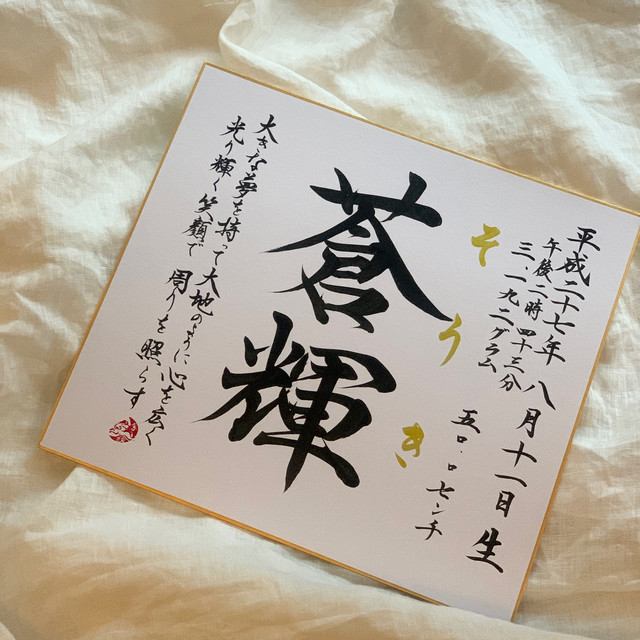 平成二十七年 八月十一日 生
午後二時四十三分
三、一九二グラム 五〇.〇センチ
そうき
蒼輝
大きな夢を持って大地のように心を広く
光り輝く笑顔で 周りを照らす